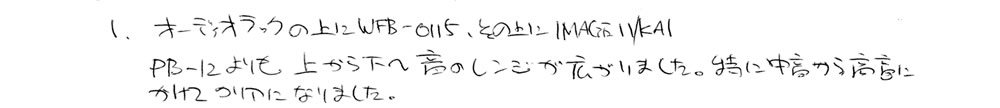 1. オーディオラックの上にWFB-0115、その上にIMAGE 11/KAI
PB-12よりも 上から下へ音のレンジが広がりました。特に中高から高音に
かけてクリアになりました。